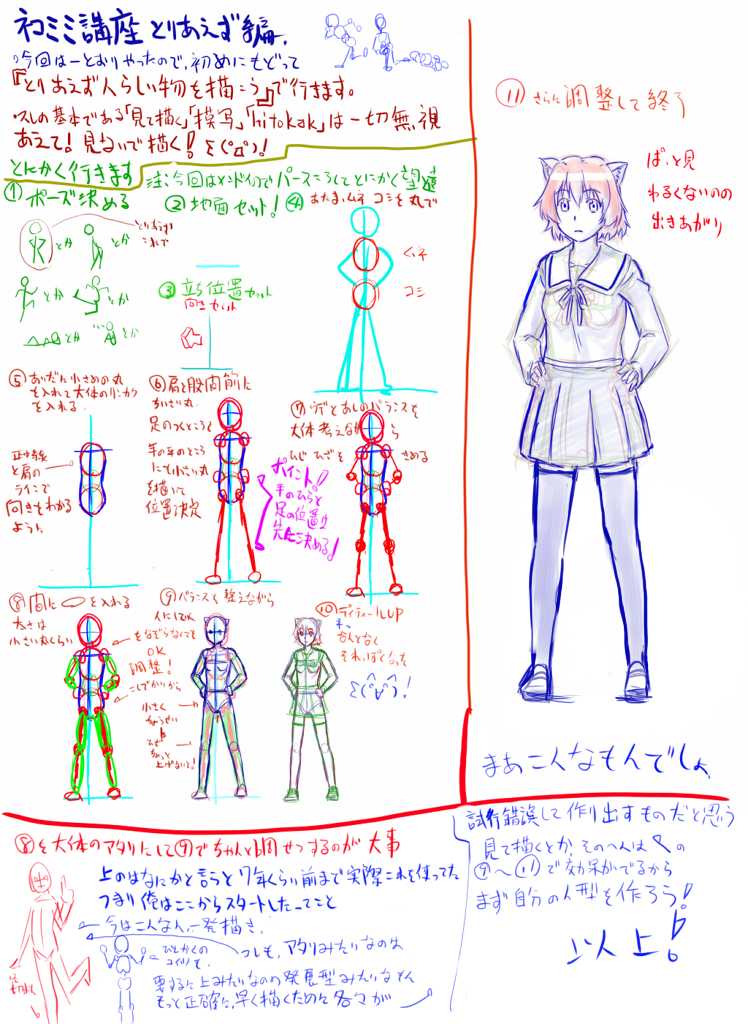 ネコミミ講座 とりあえず編.
今回は一とおりやったので、初めにもどって
『とりあえず人らしい物を描こう』で行きます。
・スレの基本である「見て描く」「模写」「hitokak」は一切無視
あえて！見ないで描く！Σ(ﾟдﾟ)！
とにかく行きます
注：今回はメンドイのでパースころしてとにかく望遠
①ポーズ決める
とりあえず
これで
とか とか
とか とか
とか とか
②地面セット！
③立ち位置
向きセット
④あたま、ムネ コシを丸で
ムネ
コシ
⑤あいだに小さめの丸
を入れて大体のリンカク
を入れる.
正中線
と肩の
ラインで
向きをわかる
ように
⑥肩と股関節に
ちいさい丸
足のつくところ
手の平のところ
にも小さい丸
を描いて
位置決定
ポイント！
手のひらと
足の位置は
先に決める！
⑦ウデとあしのバランスを
大体考えながら
ひじ ひざを きめる
⑧間に を入れる
太さは
小さい丸くらい
⑨バランスを整えながら
人にしてく
OK
調整！
小さく
ひざ
ちょっと
上げたいなと！
⑩ディティールUP
なんとなく
それっぽくなった
Σ(ﾟ∀ﾟ)！
⑪さらに調整して終了
ぱっと見
わるくないの
出きあがり
まあこんなもんでしょ.
⑧を大体のアタリにして⑨でちゃんと調せつするのが大事
上のはなにかと言うと7年くらい前まで実際これを使ってた
つまり俺はここからスタートしたってこと
今はこんなん一発描き.
ひとかくの
コイツも.
つしも、アタリみたいなのは
要するに上みたいなの発展型みたいなもん
もっと正確に、早く描くために各々が
試行錯誤して作り出すものだと思う
見て描くとか、そのへんは の
⑨〜⑪で効果がでるから
まず自分の人型を作ろう！
以上！